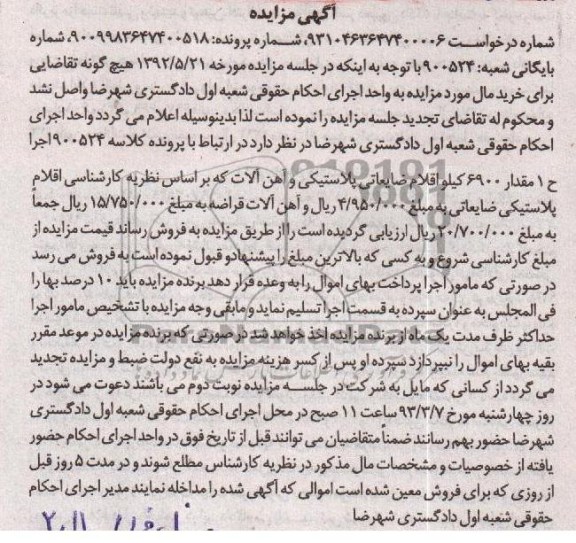 آگهی مزایده
شماره درخواست ۹۳۱۰۴۶۳۶۴۷۴۰۰۰۰۶، شماره پرونده: ۹۰۰۹۹۸۳۶۴۷۴۰۰۵۱۸، شماره
بایگانی شعبه: ۹۰۰۵۲۴ با توجه به اینکه در جلسه مزایده مورخه ۱۳۹۲/۵/۲۱ هیچ گونه تقاضایی
برای خرید مال مورد مزایده به واحد اجرای احکام حقوقی شعبه اول دادگستری شهرضا واصل نشد
و محکوم له تقاضای تجدید جلسه مزایده را نموده است لذا بدینوسیله اعلام می گردد واحد اجرای
احکام حقوقی شعبه اول دادگستری شهرضا در نظر دارد در ارتباط با پرونده کلاسه ۹۰۰۵۲۴ اجرا
ح ۱ مقدار ۶۹۰۰ کیلو اقلام ضایعاتی پلاستیکی و آهن آلات که بر اساس نظریه کارشناسی اقلام
پلاستیکی ضایعاتی به مبلغ ۴/۹۵۰/۰۰۰ ریال و آهن آلات قراضه به مبلغ ۱۵/۷۵۰/۰۰۰ ریال جمعاً
به مبلغ ۲۰/۷۰۰/۰۰۰ ریال ارزیابی گردیده است را از طریق مزایده به فروش رساند قیمت مزایده از
مبلغ کارشناسی شروع و به کسی که بالاترین مبلغ را پیشنهاد و قبول نموده است به فروش می رسد
در صورتی که مامور اجرا پرداخت بهای اموال را به وعده قرار دهد برنده مزایده باید ۱۰ درصد بها را
فی المجلس به عنوان سپرده به قسمت اجرا تسلیم نماید و مابقی وجه مزایده با تشخیص مامور اجرا
حداکثر ظرف مدت یک ماه از برنده مزایده اخذ خواهد شد در صورتی که برنده مزایده در موعد مقرر
بقیه بهای اموال را نپردازد سپرده او پس از کسر هزینه مزایده به نفع دولت ضبط و مزایده تجدید
می گردد از کسانی که مایل به شرکت در جلسه مزایده نوبت دوم می باشند دعوت می شود در
روز چهارشنبه مورخ ۹۳/۳/۷ ساعت ۱۱ صبح در محل اجرای احکام حقوقی شعبه اول دادگستری
شهرضا حضور بهم رسانند ضمناً متقاضیان می توانند قبل از تاریخ فوق در واحد اجرای احکام حضور
یافته از خصوصیات و مشخصات مال مذکور در نظریه کارشناس مطلع شوند و در مدت ۵ روز قبل
از روزی که برای فروش معین شده است اموالی که آگهی شده را مداخله نمایند مدیر اجرای احکام
حقوقی شعبه اول دادگستری شهرضا